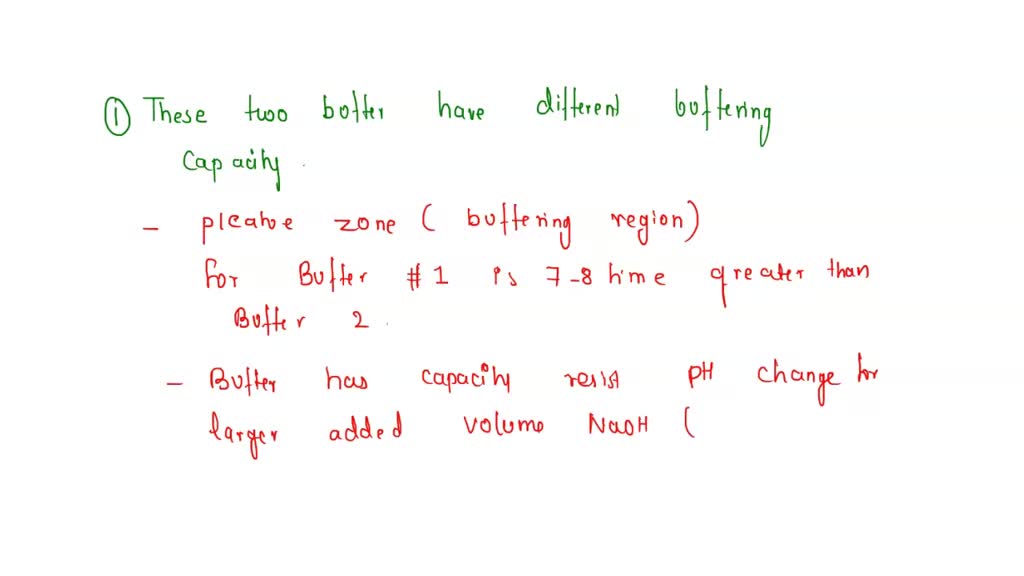 ① These two buffer have different buffering
Capacity.
- pleatue zone ( buffering region)
for Buffer #1 is 7-8 time greater than
Buffer 2.
- Buffer has capacity resist pH change for
larger added volume NaOH (